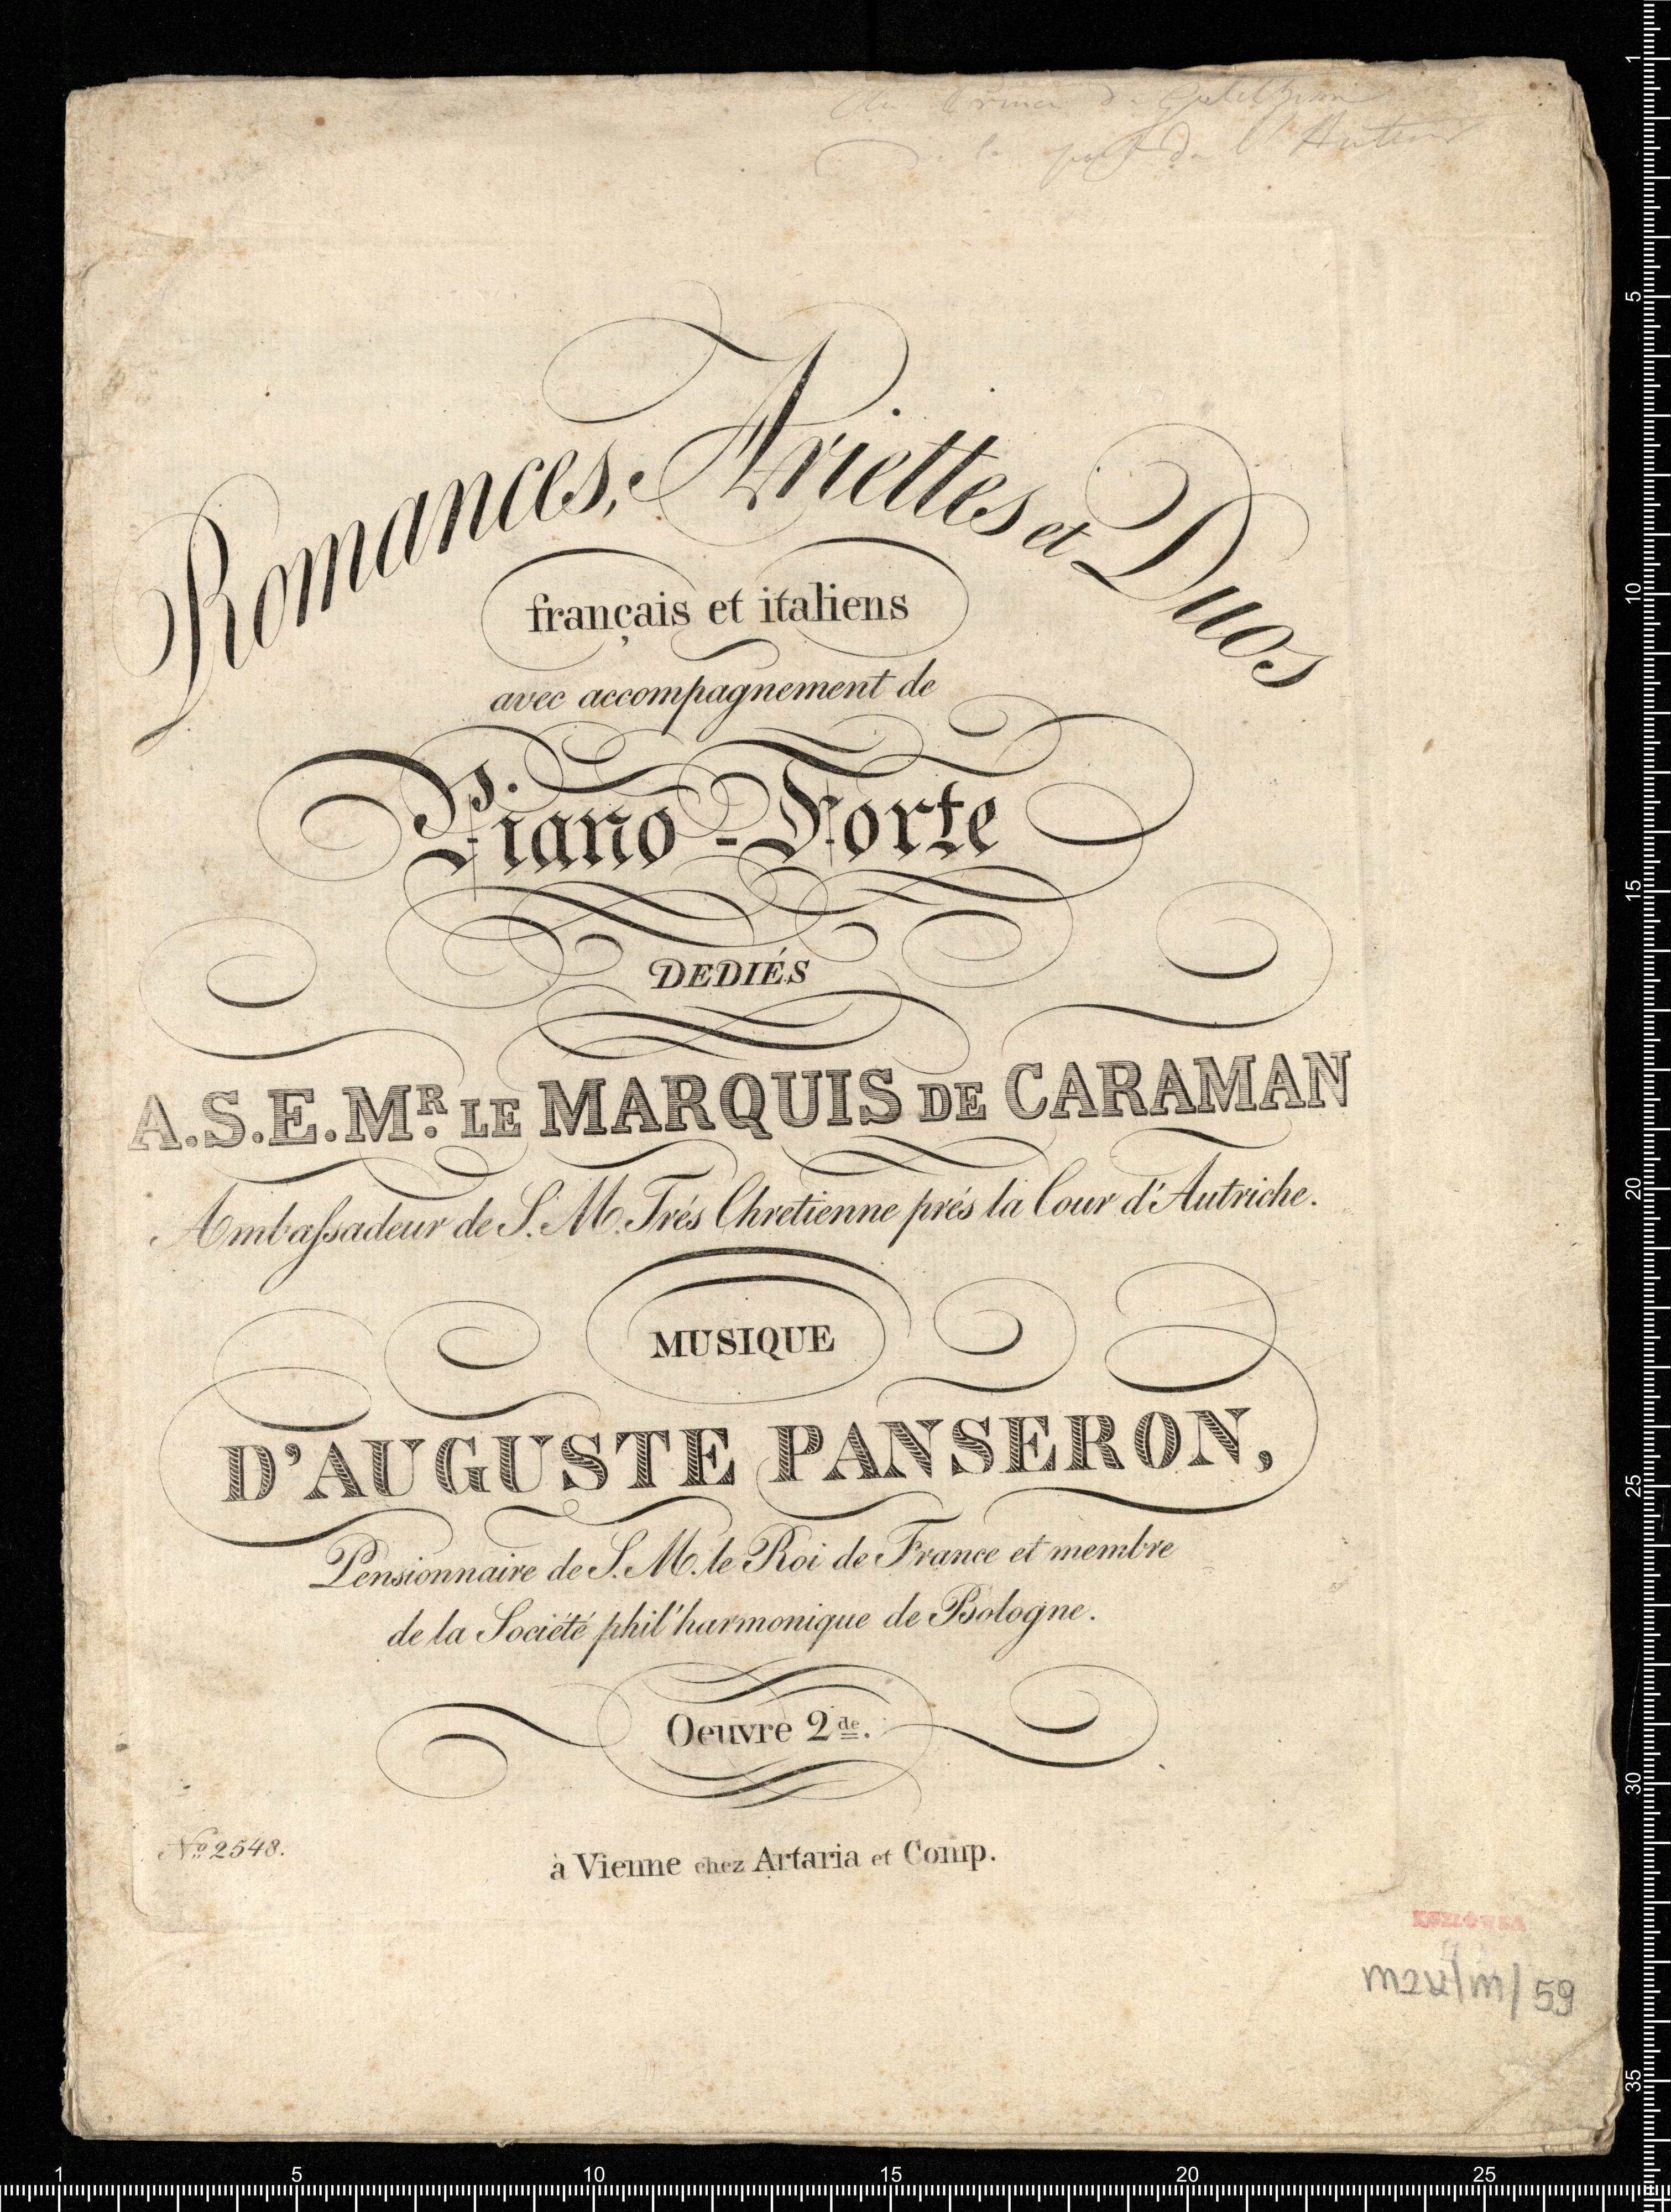 de la part de l'Auteur
Romances, Ariettes et Duos
français et italiens
avec accompagnement de
Piano-Forte
DEDIÉS
A.S.E.MR. LE MARQUIS DE CARAMAN
Ambaſsadeur de S. M. Trés Chretienne prés la Cour d'Autriche.
MUSIQUE
D'AUGUSTE PANSERON,
Pensionnaire de S. M. le Roi de France et membre
de la Société phil'harmonique de Bologne.
Oeuvre 2de.
No 2548.
à Vienne chez Artaria et Comp.
KOZŁÓWKA
59
1
5
10
15
20
25
30
35
1
5
10
15
20
25